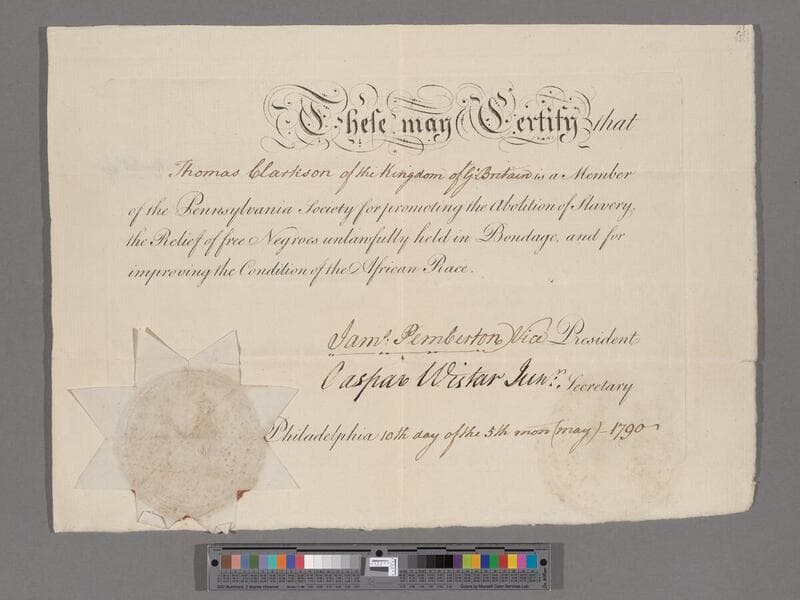 These may Certify that
Thomas Clarkson of the Kingdom of Gt. Britain is a Member
of the Pennsylvania Society for promoting the Abolition of Slavery,
the Relief of free Negroes unlawfully held in Bondage, and for
improving the Condition of the African Race.
Jams. Pemberton Vice President
Caspar Wistar Junr. Secretary
Philadelphia 10th day of the 5th mon (may) 1790